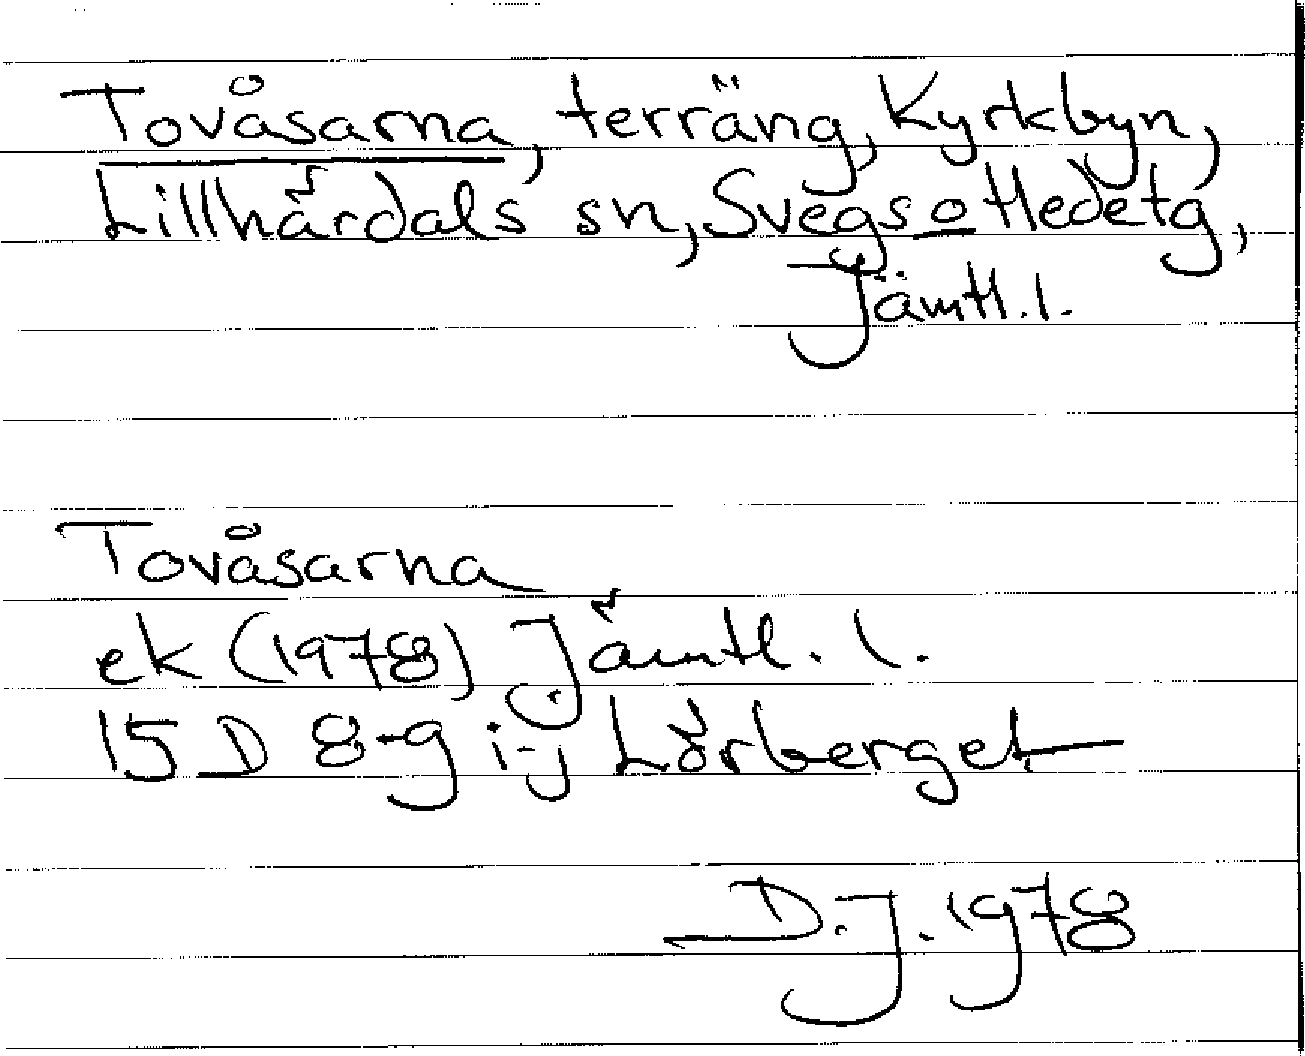 Tovåsarna, terräng, Kyrkbyn,
Lillhärdals sn, Svegs o Hedetg,
Jämtl. l.
Tovåsarna
ek (1978) Jämtl. l.
15 D 8-9 i-j Lörberget
D.J. 1978